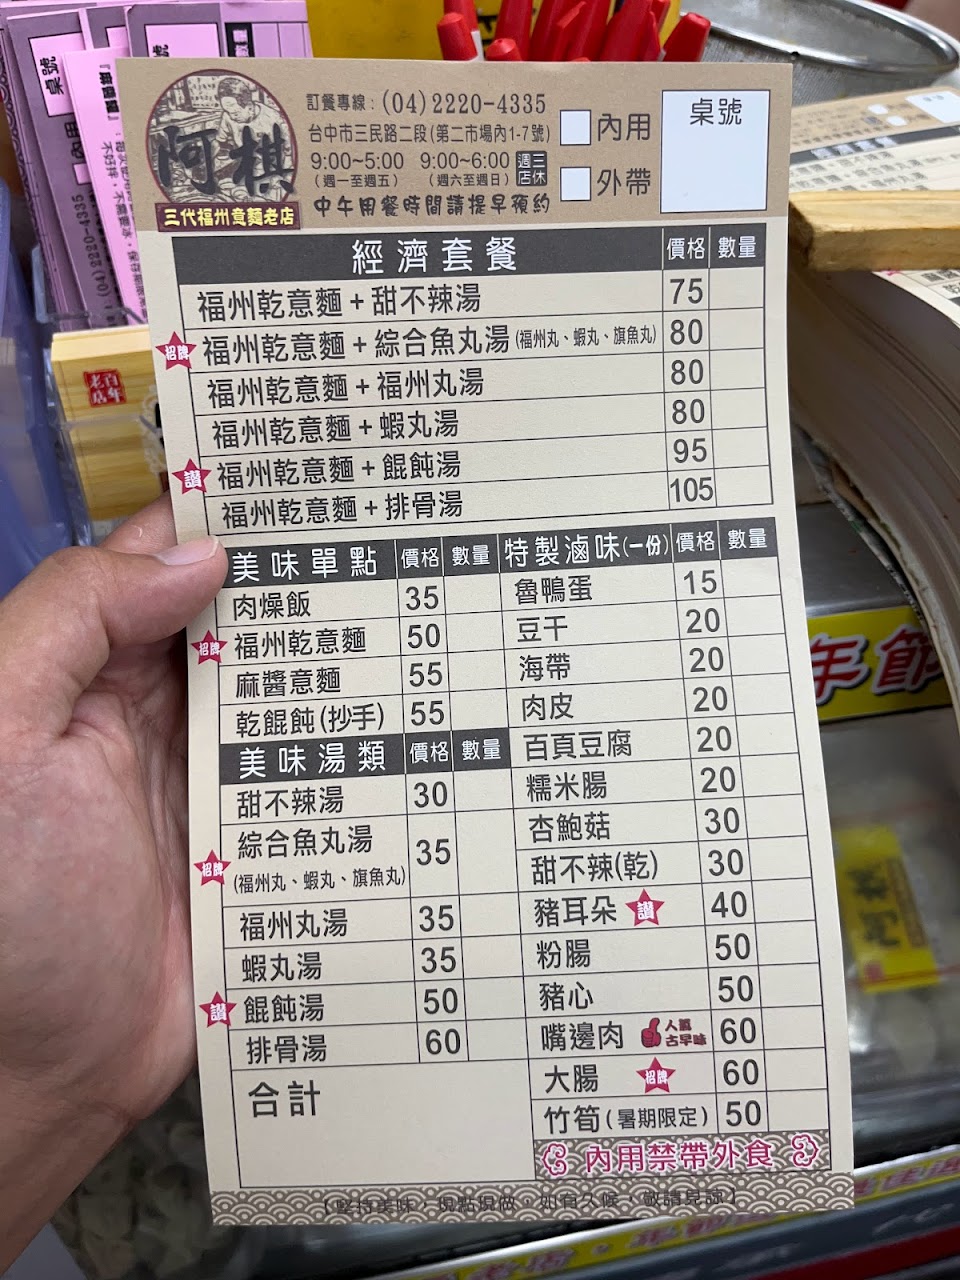 阿棋
三代福州意麵老店
訂餐專線：(04)2220-4335
台中市三民路二段(第二市場內1-7號)
9:00~5:00 9:00~6:00 週三店休
(週一至週五) (週六至週日)
中午用餐時間請提早預約
內用
外帶
桌號
經濟套餐 價格 數量
福州乾意麵+甜不辣湯 75
招牌 福州乾意麵+綜合魚丸湯(福州丸、蝦丸、旗魚丸) 80
福州乾意麵+福州丸湯 80
福州乾意麵+蝦丸湯 80
讚 福州乾意麵+餛飩湯 95
福州乾意麵+排骨湯 105
美味單點 價格 數量
肉燥飯 35
招牌 福州乾意麵 50
麻醬意麵 55
乾餛飩(抄手) 55
美味湯類 價格 數量
甜不辣湯 30
招牌 綜合魚丸湯 35
(福州丸、蝦丸、旗魚丸)
福州丸湯 35
蝦丸湯 35
讚 餛飩湯 50
排骨湯 60
合計
特製滷味(一份) 價格 數量
魯鴨蛋 15
豆干 20
海帶 20
肉皮 20
百頁豆腐 20
糯米腸 20
杏鮑菇 30
甜不辣(乾) 30
豬耳朵 讚 40
粉腸 50
豬心 50
嘴邊肉 人氣古早味 60
大腸 招牌 60
竹筍(暑期限定) 50
內用禁帶外食
【堅持美味，現點現做，如有久候，敬請見諒】
桌號
內用
百年老店
年節
阿棋